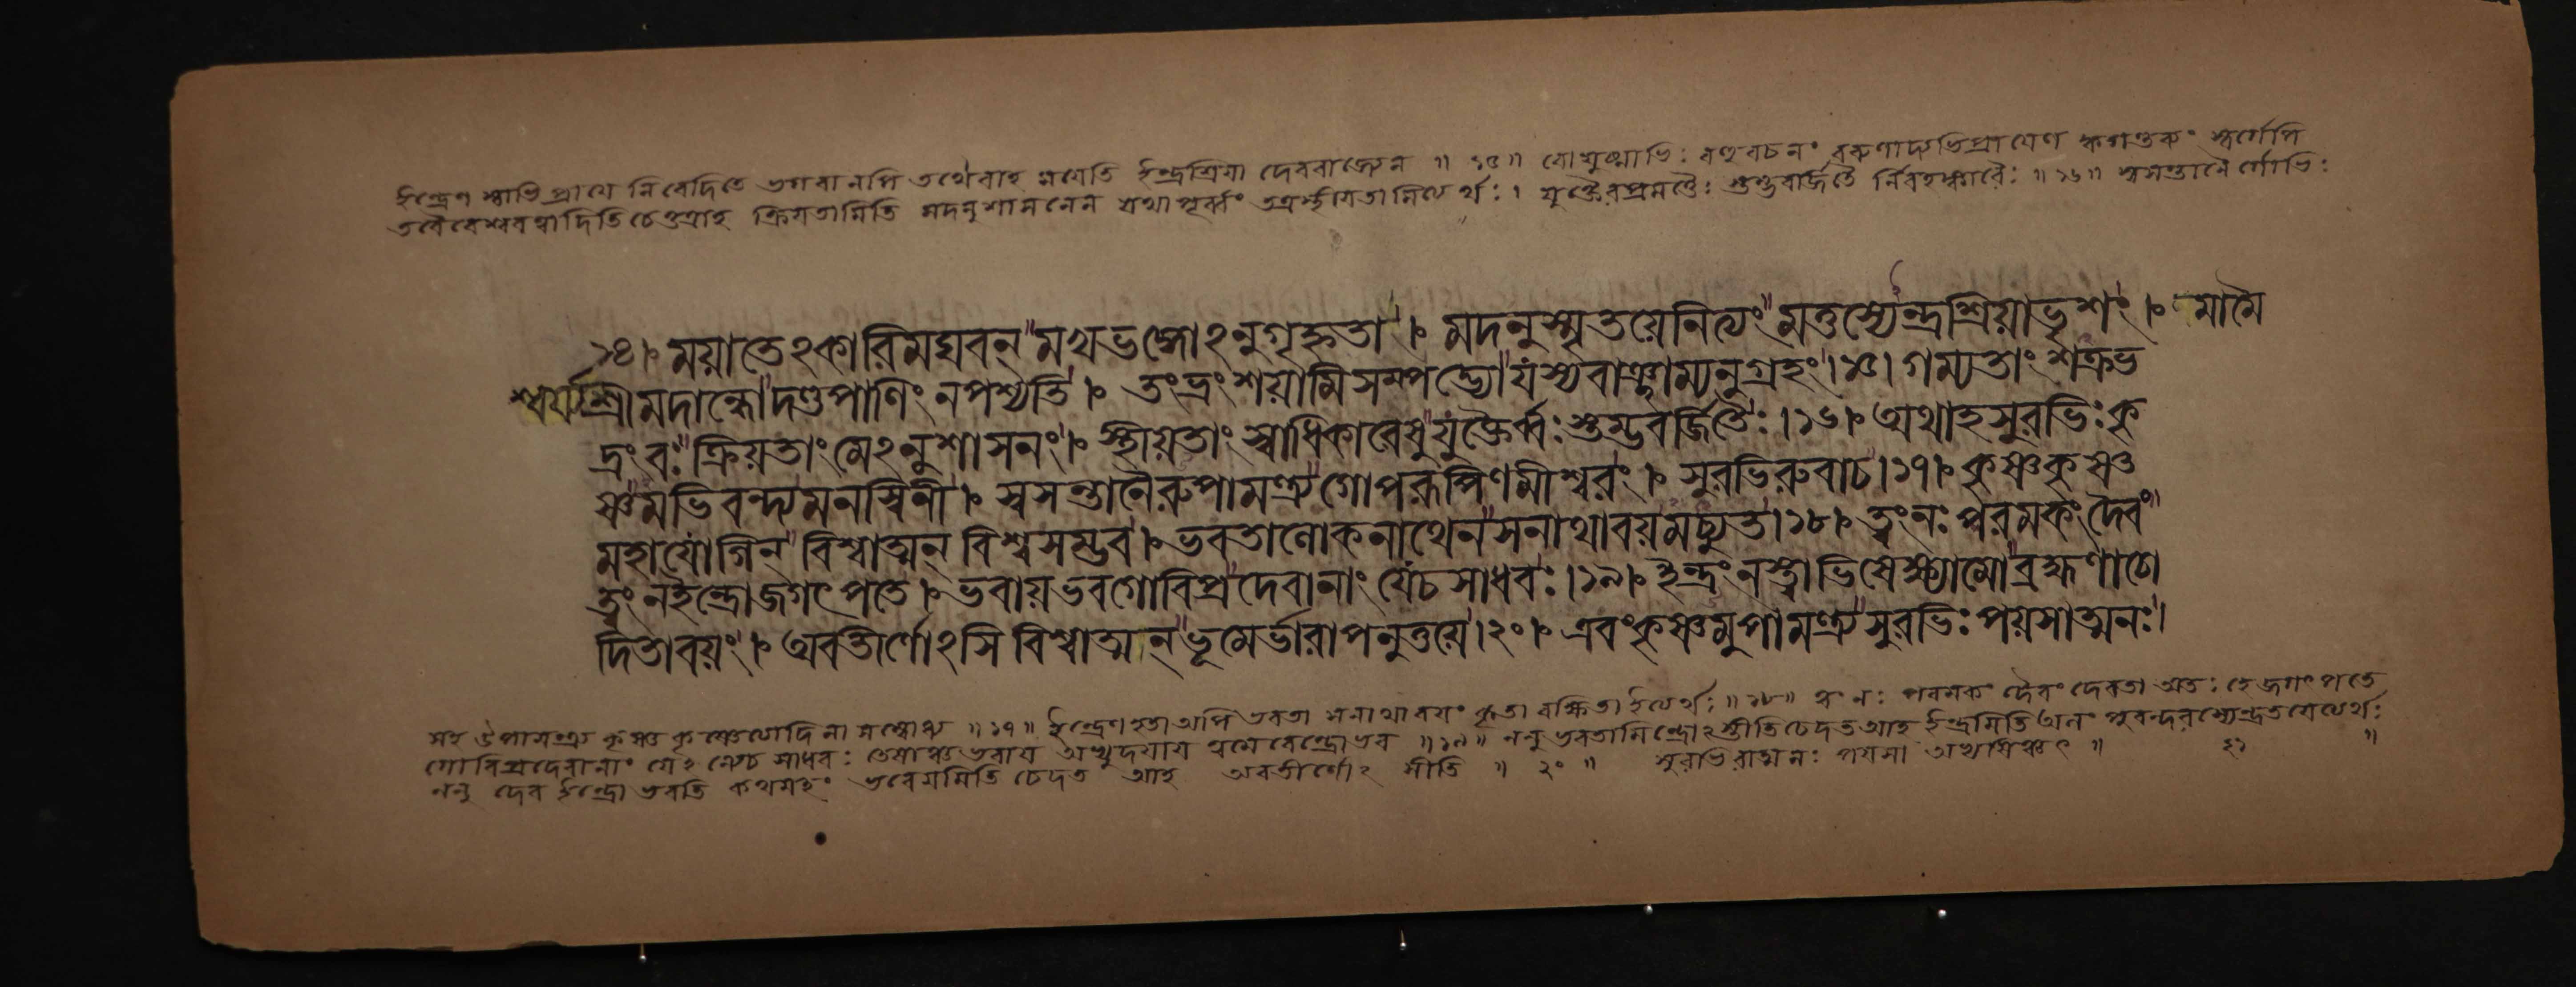 ইন্দ্রেণ স্বাভিপ্রায়ে নিবেদিতে ভগবানপি তথৈবাহ ময়েতি ইন্দ্রশ্রিয়া দেবরাজ্যেন ॥ ১৫॥ বোযুষ্মাভিঃ বহুবচনং বরুণাদ্যভিপ্রায়েণ স্বর্গেপি
তবৈবেশ্বরত্বাদিতি চেত্তত্রাহ ক্রিয়তামিতি মদনুশাসনেন যথাপূর্ব্বং তত্রস্থীয়তামিত্যর্থঃ। যুক্তৈরপ্রমত্তৈঃ স্তম্ভবর্জিতৈ র্নিরহঙ্কারৈঃ ॥ ১৬॥ স্বসন্তানৈ র্গোভিঃ
১৪।ঃ ময়াতেঽকারিমঘবন্ মখভঙ্গোঽনুগৃহ্নতা।ঃ মদনুস্মৃতয়েনিত্যং মত্তস্যেন্দ্রশ্রিয়াভৃশং।ঃ মামৈ
শ্বর্য্যশ্রীমদান্ধোদণ্ডপাণিং নপশ্যতি।ঃ তংভ্রংশয়ামিসম্পদ্ভ্যোযস্যবাঞ্ছাম্যনুগ্রহং।১৫। গম্যতাং শক্রভ
দ্রং বঃ ক্রিয়তাং মেঽনুশাসনং।ঃ স্থীয়তাং স্বাধিকারেষুযুক্তৈর্ব্বঃ স্তম্ভবর্জিতৈঃ।১৬।ঃ অথাহসুরভিঃ কৃ
ষ্ণমভিবন্দ্যমনস্বিনী।ঃ স্বসন্তানৈরুপামন্ত্র্যগোপরূপিণমীশ্বরং।ঃ সুরভিরুবাচ।১৭।ঃ কৃষ্ণকৃষ্ণ
মহাযোগিন্ বিশ্বাত্মন্ বিশ্বসম্ভব।ঃ ভবতালোকনাথেনসনাথাবয়মচ্যুত।১৮।ঃ ত্বংনঃ পরমকংদৈবং
ত্বংনইন্দ্রোজগৎপতে।ঃ ভবায়ভবগোবিপ্রদেবানাং যেচসাধবঃ।১৯।ঃ ইন্দ্রংনস্ত্বাভিষেক্ষ্যামোব্রহ্মণাচো
দিতাবয়ং।ঃ অবতীর্ণোঽসি বিশ্বাত্মন্ ভূমের্ভারাপনুত্তয়ে।২০।ঃ এবংকৃষ্ণমুপামন্ত্র্যসুরভিঃ পয়সাত্মনঃ।
সহ উপামন্ত্র্য কৃষ্ণ কৃষ্ণেত্যাদিনা সম্বোধ্য ॥ ১৭॥ ইন্দ্রেণহতাঅপি ভবতা সনাথাবয়ং কৃতা রক্ষিতা ইত্যর্থঃ ॥১৮॥ ত্বং নঃ পরমকং দৈবং দেবতা অতঃ হে জগৎপতে
গোবিপ্রদেবানাং যেঽন্যেচ সাধবঃ তেষাঞ্চ ভবায় অভ্যুদয়ায় ত্বমেবেন্দ্রোভব ॥১৯॥ ননু ভবতামিন্দ্রোঽস্তীতিচেদতআহ ইন্দ্রমিতি অলং পুরন্দরস্যেন্দ্রতয়েত্যর্থঃ ॥
ননু দেব ইন্দ্রো ভবতি কথমহং ভবেয়মিতি চেদত আহ অবতীর্ণোঽ সীতি ॥ ২০॥ সুরভিরাত্মনঃ পয়সা অভ্যষিঞ্চৎ ॥ ২১